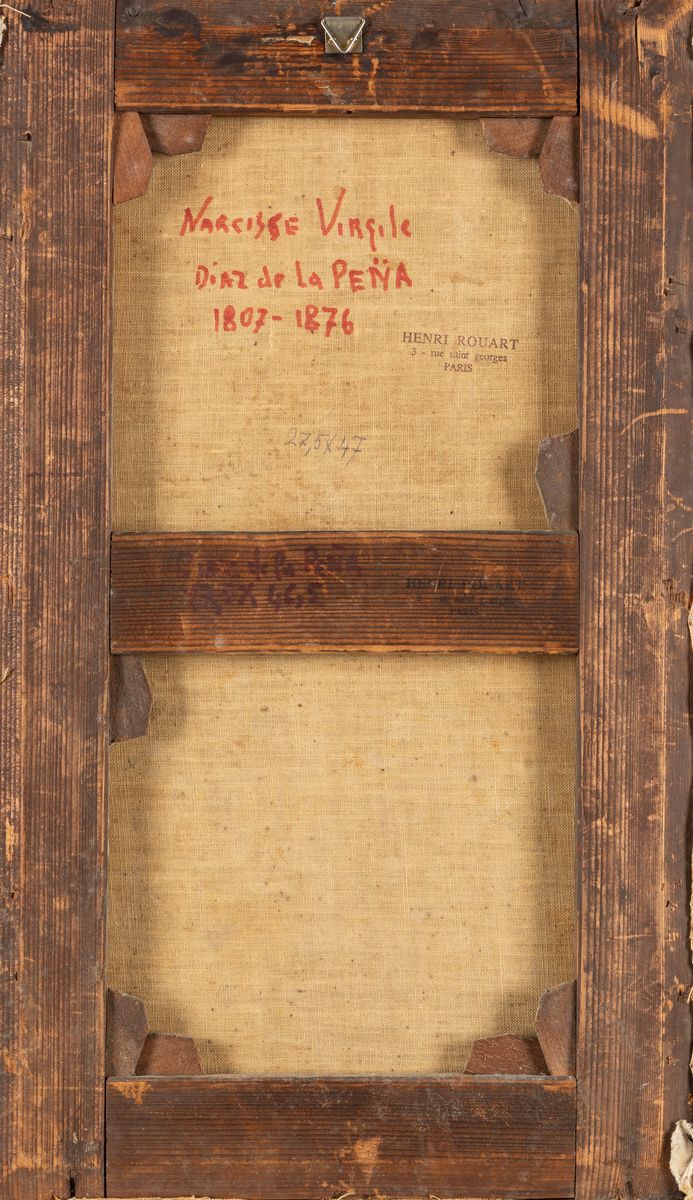 NARCISSE VIRGILE
DIAZ de La PEÑA
1807-1876
HENRI ROUART
3 - rue saint georges
PARIS
27,5X47
DIAZ de la PEÑA
HENRI ROUART
PARIS